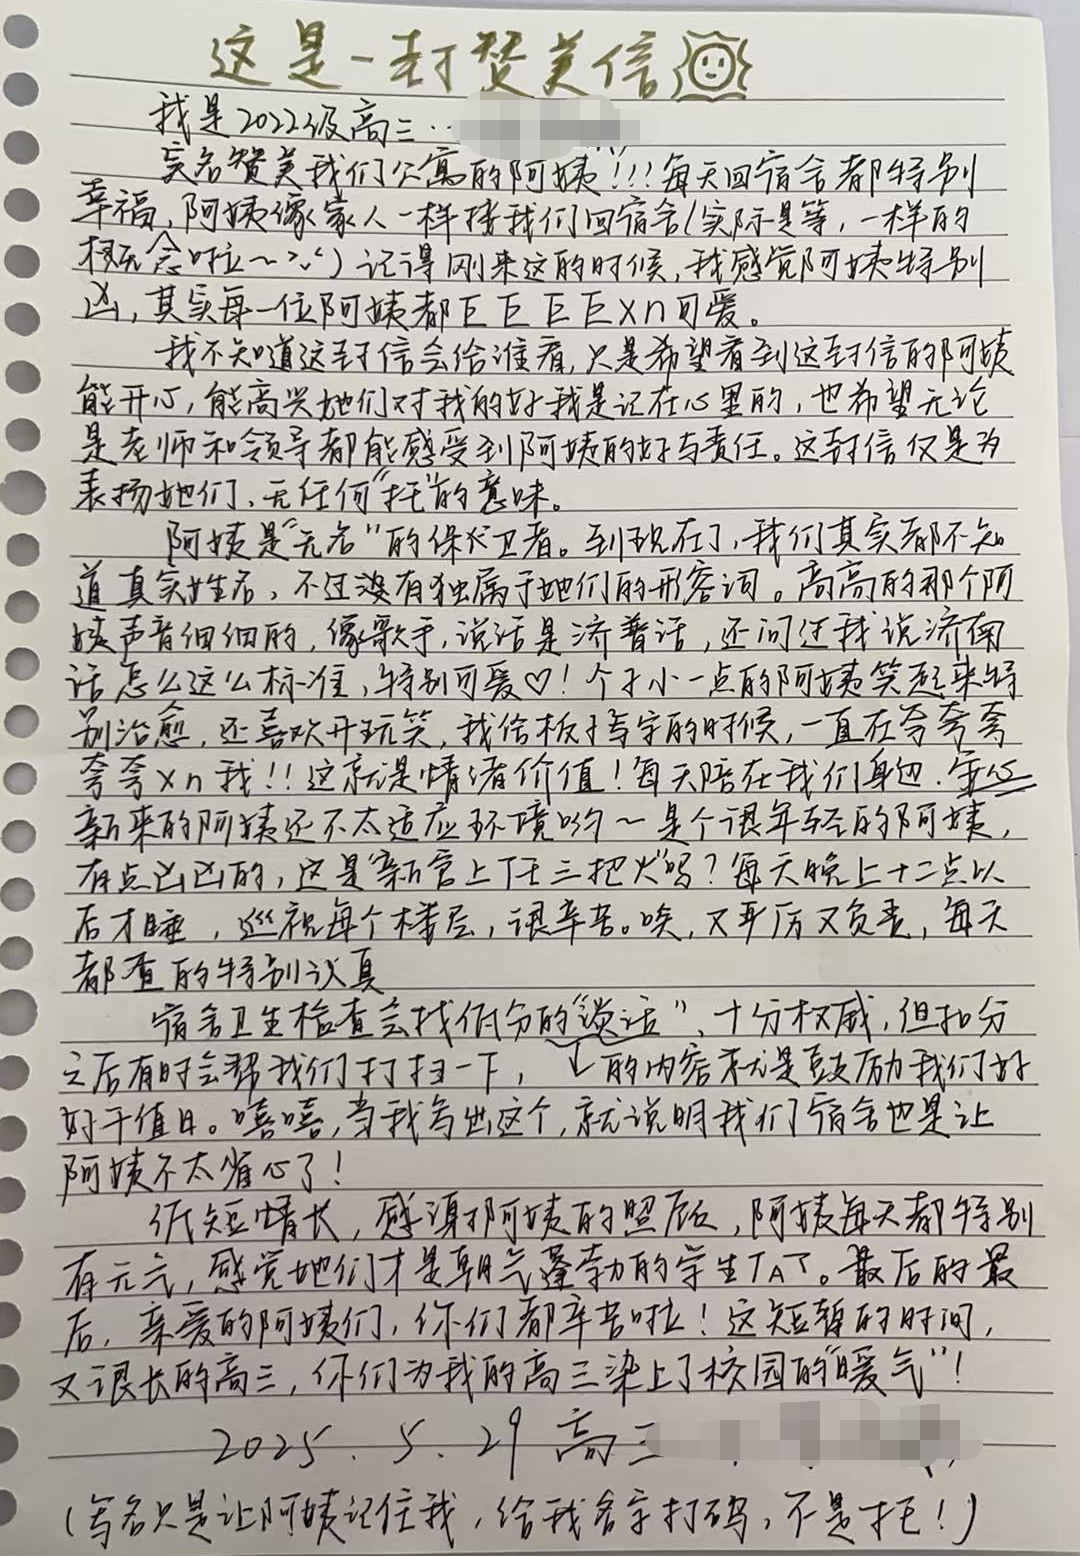 这是一封赞美信
我是2022级高三..
实名赞美我们公寓的阿姨!!!每天回宿舍都特别
幸福,阿姨像家人一样接我们回宿舍(实际是等,一样的
概念啦~>ᴗ<)记得刚来这的时候,我感觉阿姨特别
凶,其实每一位阿姨都巨巨巨巨xn可爱。
我不知道这封信会给谁看,只是希望看到这封信的阿姨
能开心,能高兴她们对我的好我是记在心里的,也希望无论
是老师和领导都能感受到阿姨的好与责任。这封信仅是为
表扬她们、无任何“托”的意味。
阿姨是“无名”的保卫者。到现在了,我们其实都不知
道真实姓名,不过没有独属于她们的形容词。高高的那个阿
姨声音细细的,像歌手,说话是济普话,还问过我说济南
话怎么这么标准,特别可爱♡!个子小一点的阿姨笑起来特
别治愈,还喜欢开玩笑,我给板子写字的时候,一直在夸夸夸
夸夸xn我!!这就是情绪价值!每天陪在我们身边.安心
新来的阿姨还不太适应环境哟~是个很年轻的阿姨,
有点凶凶的,这是“新官上任三把火”吗?每天晚上十二点以
后才睡,巡视每个楼层,很辛苦。唉,又严厉又负责,每天
都查的特别认真
宿舍卫生检查会找低分的“谈话”、十分权威,但扣分
之后有时会帮我们打扫一下,↙的内容就是鼓励我们好
好干值日。嘻嘻,当我写出这个,就说明我们宿舍也是让
阿姨不太省心了!
纸短情长,感谢阿姨的照顾,阿姨每天都特别
有元气,感觉她们才是朝气蓬勃的学生TAT。最后的最
后,亲爱的阿姨们,你们都辛苦啦!这短暂的时间,
又很长的高三,你们为我的高三染上了校园的“暖气”!
2025.5.29 高三
(写名只是让阿姨记住我,给我名字打码,不是托!)